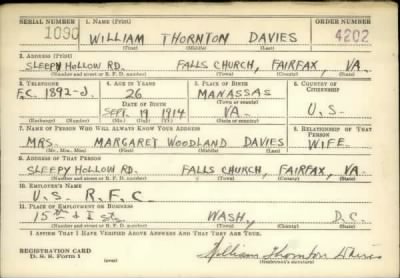 SERIAL NUMBER 1. NAME (Print) ORDER NUMBER
1090 WILLIAM THORNTON DAVIES 4202
(First) (Middle) (Last)
2. ADDRESS (Print)
SLEEPY HOLLOW RD. FALLS CHURCH, FAIRFAX, VA.
(Number and street or R. F. D. number) (Town) (County) (State)
3. TELEPHONE 4. AGE IN YEARS 5. PLACE OF BIRTH 6. COUNTRY OF CITIZENSHIP
F.C. 1892-J. 26 MANASSAS
DATE OF BIRTH (Town or county)
SEPT. 19 1914 VA. U.S.
(Exchange) (Number) (Mo.) (Day) (Yr.) (State or country)
7. NAME OF PERSON WHO WILL ALWAYS KNOW YOUR ADDRESS 8. RELATIONSHIP OF THAT PERSON
MRS. MARGARET WOODLAND DAVIES WIFE
(Mr., Mrs., Miss) (First) (Middle) (Last)
9. ADDRESS OF THAT PERSON
SLEEPY HOLLOW RD. FALLS CHURCH, FAIRFAX, VA.
(Number and street or R. F. D. number) (Town) (County) (State)
10. EMPLOYER'S NAME
U.S. R.F.C.
11. PLACE OF EMPLOYMENT OR BUSINESS
15th & I STS. WASH, D.C.
(Number and street or R. F. D. number) (Town) (County) (State)
I AFFIRM THAT I HAVE VERIFIED ABOVE ANSWERS AND THAT THEY ARE TRUE.
REGISTRATION CARD
D. S. S. FORM 1 (over) William Thornton Davies
(Registrant's signature)